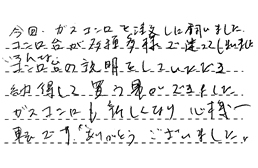 今回、ガスコンロを注文しに伺いました。
コンロ台が多種多様で迷ってしまい
そんな
コンロ台の説明をしていただき
納得して買う事ができました
ガスコンロも新しくなり心機一
転です。ありがとうございました。